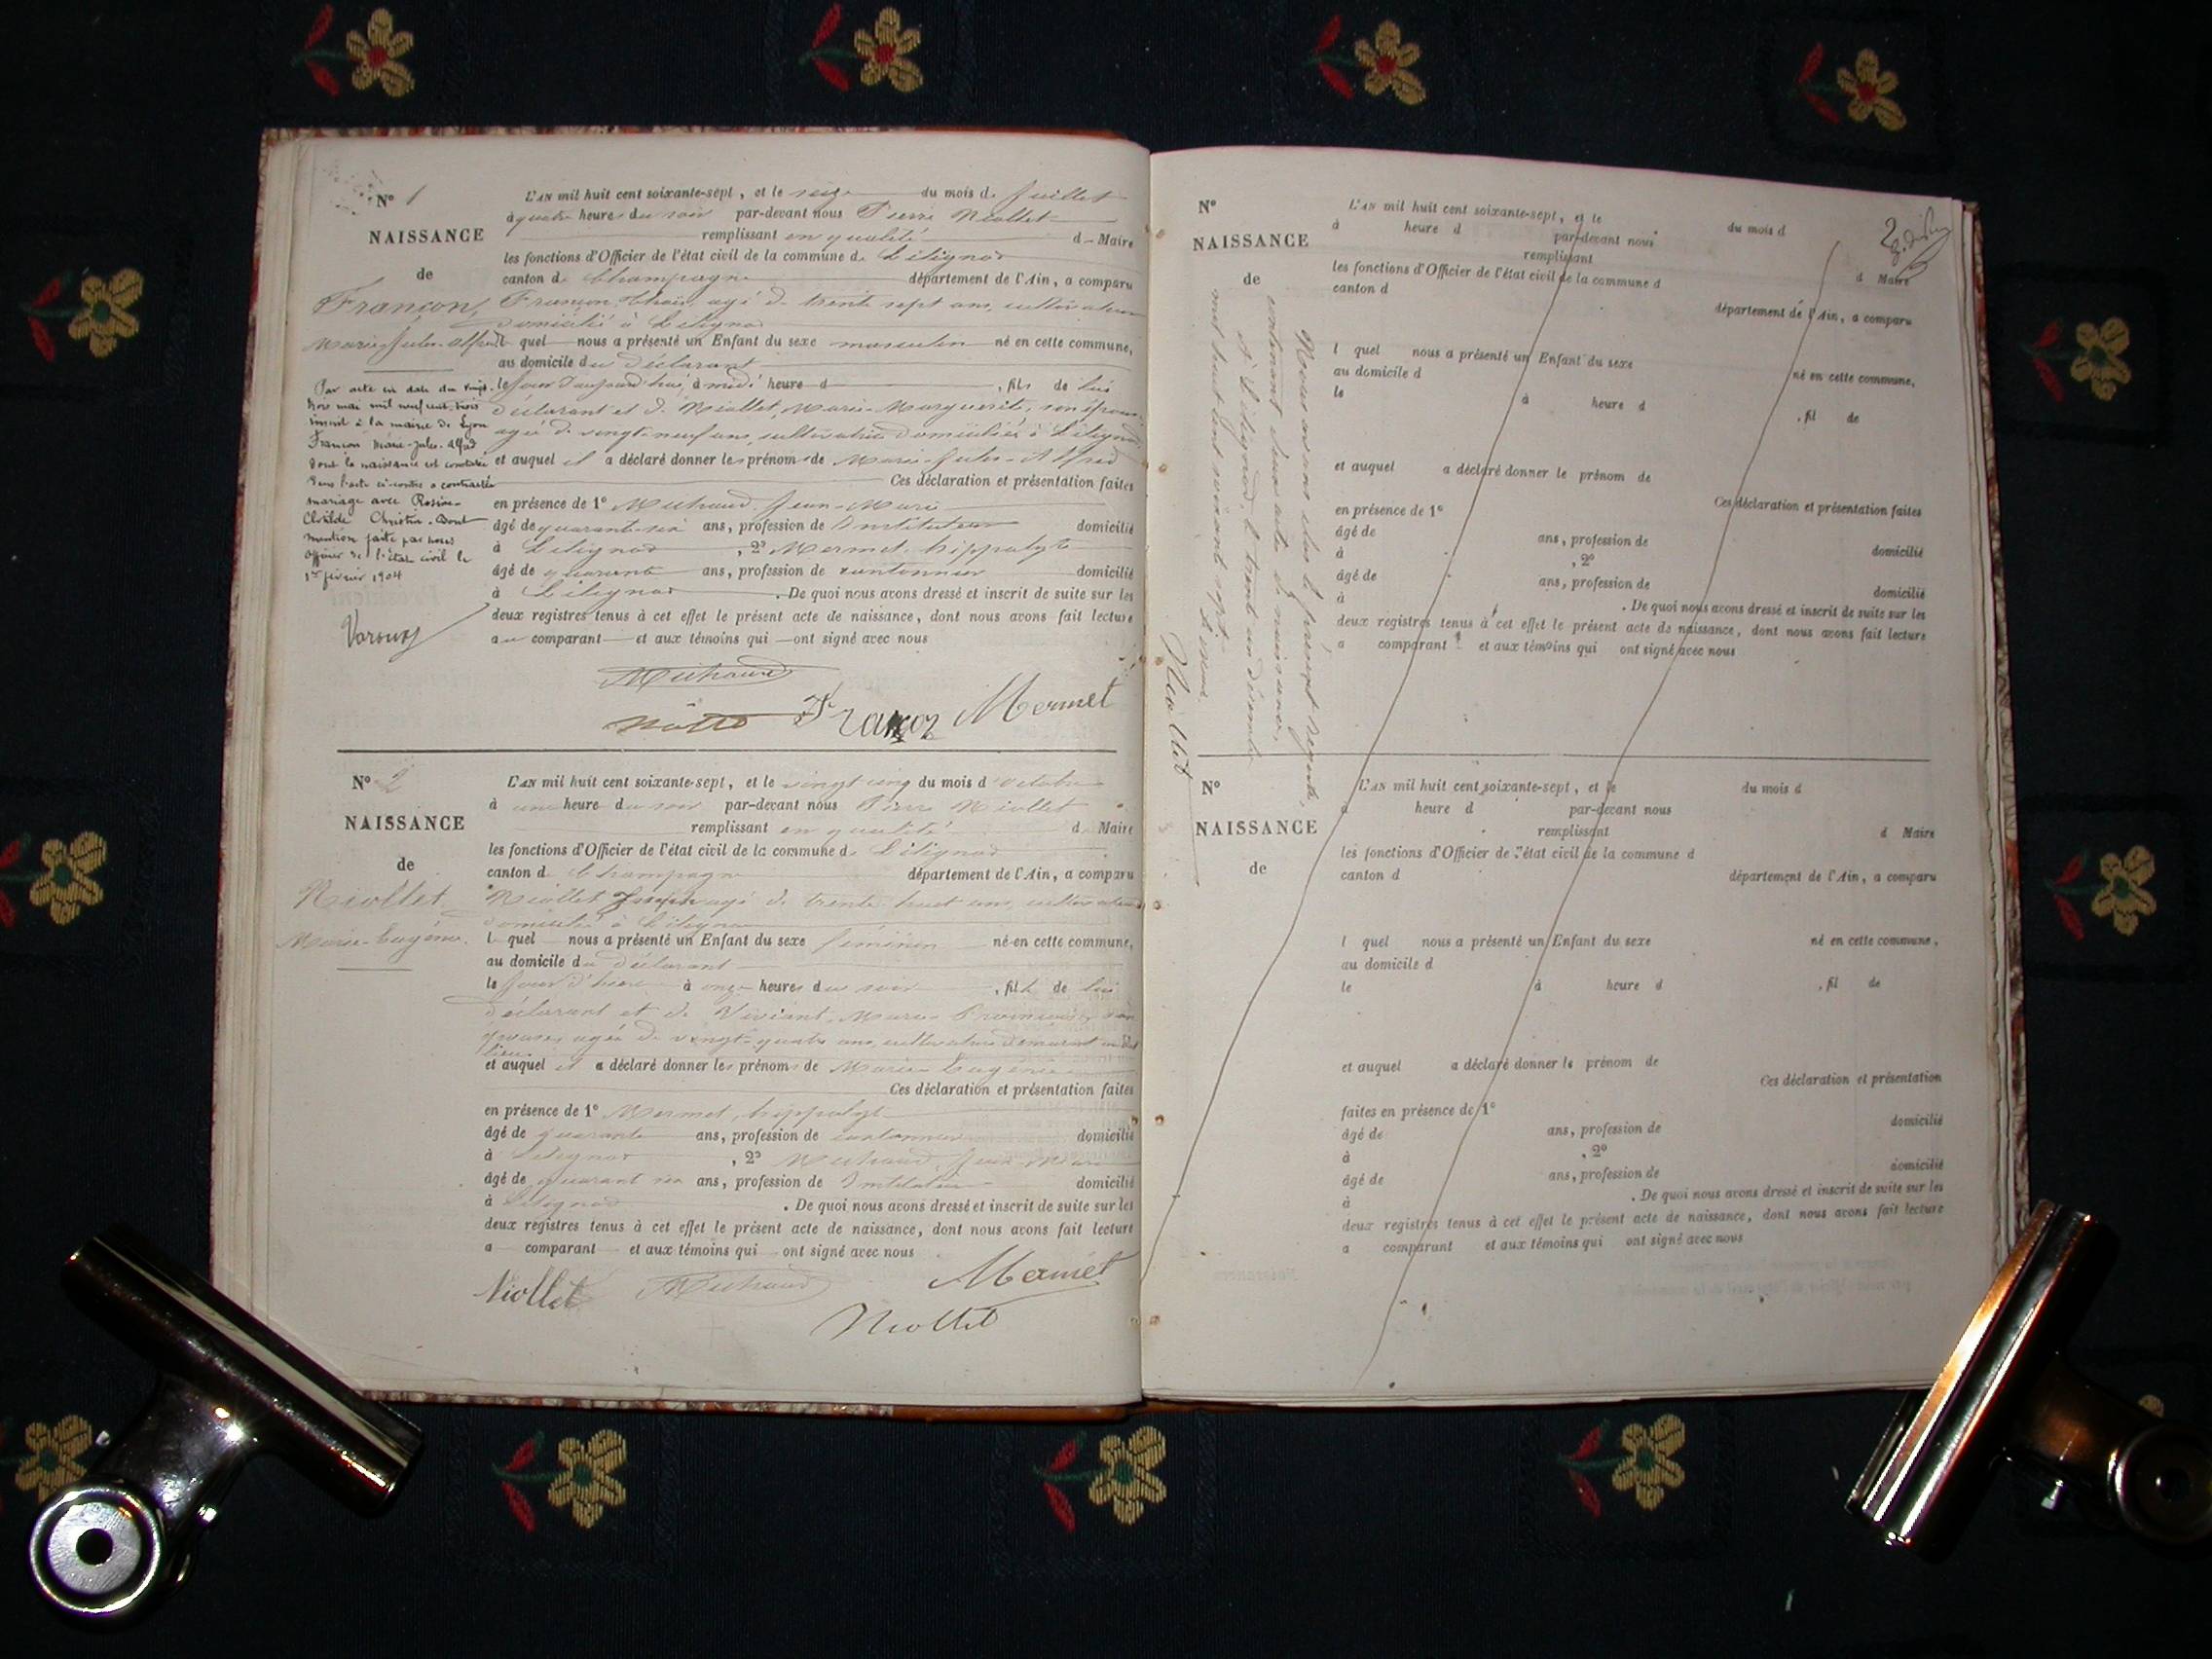 N° 1
NAISSANCE
de
Françon,
Marie-Jules-Alfred
Par acte en date du vingt-
trois mai mil neuf cent trois
à la mairie de Lyon
Françon Marie-Jules-Alfred
dont la naissance est constatée
dans l'acte ci-contre a contracté
mariage avec Rosine-
Clotilde Christin. Dont
mention faite par nous
officier de l'état civil le
1er février 1904
L'AN mil huit cent soixante-sept, et le seize du mois de Juillet
à quatre heures du soir par-devant nous Pierre Niollet
remplissant en qualité d Maire
les fonctions d'Officier de l'état civil de la commune de Lilignod
canton de Champagne département de l'Ain, a comparu
Françon agé de trente sept ans, cultivateur
domicilié à Lilignod
l quel nous a présenté un Enfant du sexe masculin né en cette commune,
au domicile du déclarant
le jour d'aujourd'hui, à midi heure d , fils de lui
déclarant et de Niollet, Marie-Marguerite, son épouse
agée de vingt-neuf ans, cultivatrice domiciliés à Lilignod
et auquel il a déclaré donner les prénoms de Marie-Jules-Alfred
Ces déclaration et présentation faites
en présence de 1° Michaud Jean-Marie
âgé de quarante-six ans, profession de Instituteur domicilié
à Lilignod , 2° Mermet, hippolyte
âgé de quarante ans, profession de cantonnier domicilié
à Lilignod . De quoi nous avons dressé et inscrit de suite sur les
deux registres tenus à cet effet le présent acte de naissance, dont nous avons fait lecture
au comparant et aux témoins qui ont signé avec nous
Michaud
Françon Mermet
N° 2
NAISSANCE
de
Niollet
Marie-Eugénie.
L'AN mil huit cent soixante-sept, et le vingt cinq du mois d'octobre
à une heure du soir par-devant nous Pierre Niollet
remplissant en qualité d Maire
les fonctions d'Officier de l'état civil de la commune de Lilignod
canton de Champagne département de l'Ain, a comparu
Niollet Joseph agé de trente huit ans, cultivateur
domicilié à Lilignod
l quel nous a présenté un Enfant du sexe féminin né en cette commune,
au domicile du déclarant
le jour d'hier à onze heures du soir , fille de lui
déclarant et de Viviant, Marie-Françoise, son
épouse, agée de vingt-quatre ans, cultivatrice demeurant
lieu
et auquel il a déclaré donner les prénoms de Marie-Eugénie
Ces déclaration et présentation faites
en présence de 1° Mermet, hippolyte
âgé de quarante ans, profession de cantonnier domicilié
à Lilignod , 2° Michaud, Jean-Marie
âgé de quarante six ans, profession de Instituteur domicilié
à Lilignod . De quoi nous avons dressé et inscrit de suite sur les
deux registres tenus à cet effet le présent acte de naissance, dont nous avons fait lecture
a comparant et aux témoins qui ont signé avec nous
Niollet Michaud Mermet
Niollet
N°
NAISSANCE
de
L'AN mil huit cent soixante-sept, et le du mois d
à heure d par-devant nous
remplissant d Maire
les fonctions d'Officier de l'état civil de la commune d
canton d département de l'Ain, a comparu
l quel nous a présenté un Enfant du sexe né en cette commune,
au domicile d
le à heure d , fil de
et auquel a déclaré donner le prénom de
Ces déclaration et présentation faites
en présence de 1°
âgé de ans, profession de domicilié
à , 2°
âgé de ans, profession de domicilié
à . De quoi nous avons dressé et inscrit de suite sur les
deux registres tenus à cet effet le présent acte de naissance, dont nous avons fait lecture
a comparant et aux témoins qui ont signé avec nous
Nous avons clos le présent registre,
contenant deux actes de naissance,
A Lilignod, le trente un décembre
mil huit cent soixante sept.
Niollet
N°
NAISSANCE
de
L'AN mil huit cent soixante-sept, et le du mois d
à heure d par-devant nous
remplissant d Maire
les fonctions d'Officier de l'état civil de la commune d
canton d département de l'Ain, a comparu
l quel nous a présenté un Enfant du sexe né en cette commune,
au domicile d
le à heure d , fil de
et auquel a déclaré donner le prénom de
Ces déclaration et présentation
faites en présence de 1°
âgé de ans, profession de domicilié
à , 2°
âgé de ans, profession de domicilié
à . De quoi nous avons dressé et inscrit de suite sur les
deux registres tenus à cet effet le présent acte de naissance, dont nous avons fait lecture
a comparant et aux témoins qui ont signé avec nous